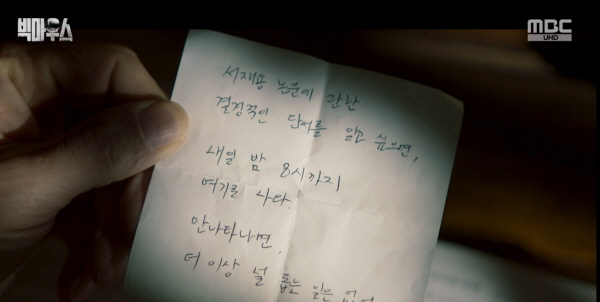 빅마우스
MBC
UHD
서재용 논문에 관한
결정적인 단서를 알고 싶으면,
내일 밤 8시까지
여기로 나와!
안나타나면,
더 이상 널 돕는 일은